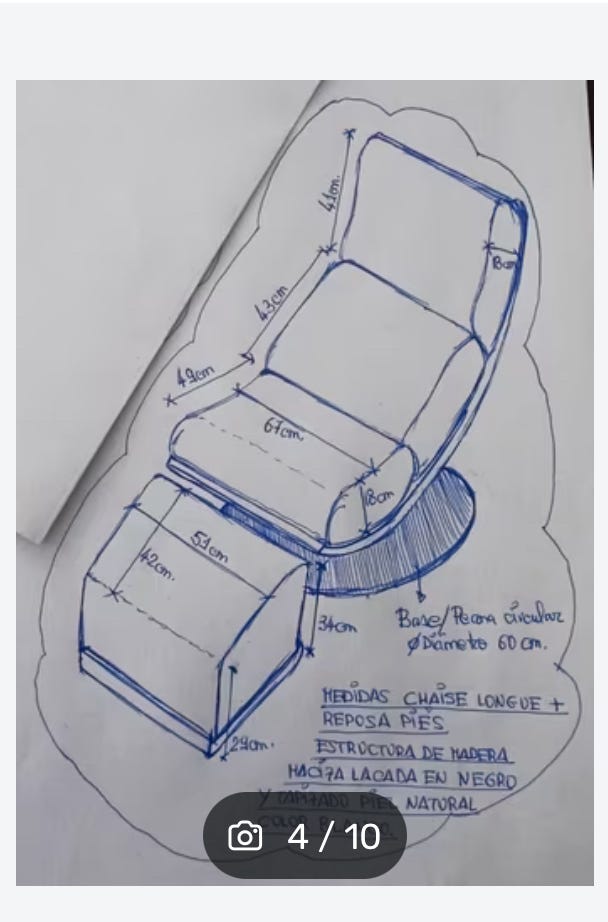 41cm.
8cm
43cm
49cm
67cm.
18cm
51cm
42cm.
34cm
Base/Peana circular
Ø Diámetro 60 cm.
29cm.
MEDIDAS CHAISE LONGUE +
REPOSA PIÉS
ESTRUCTURA DE MADERA
MACIZA LACADA EN NEGRO
Y TAPIZADO PIEL NATURAL
COLOR
4 / 10